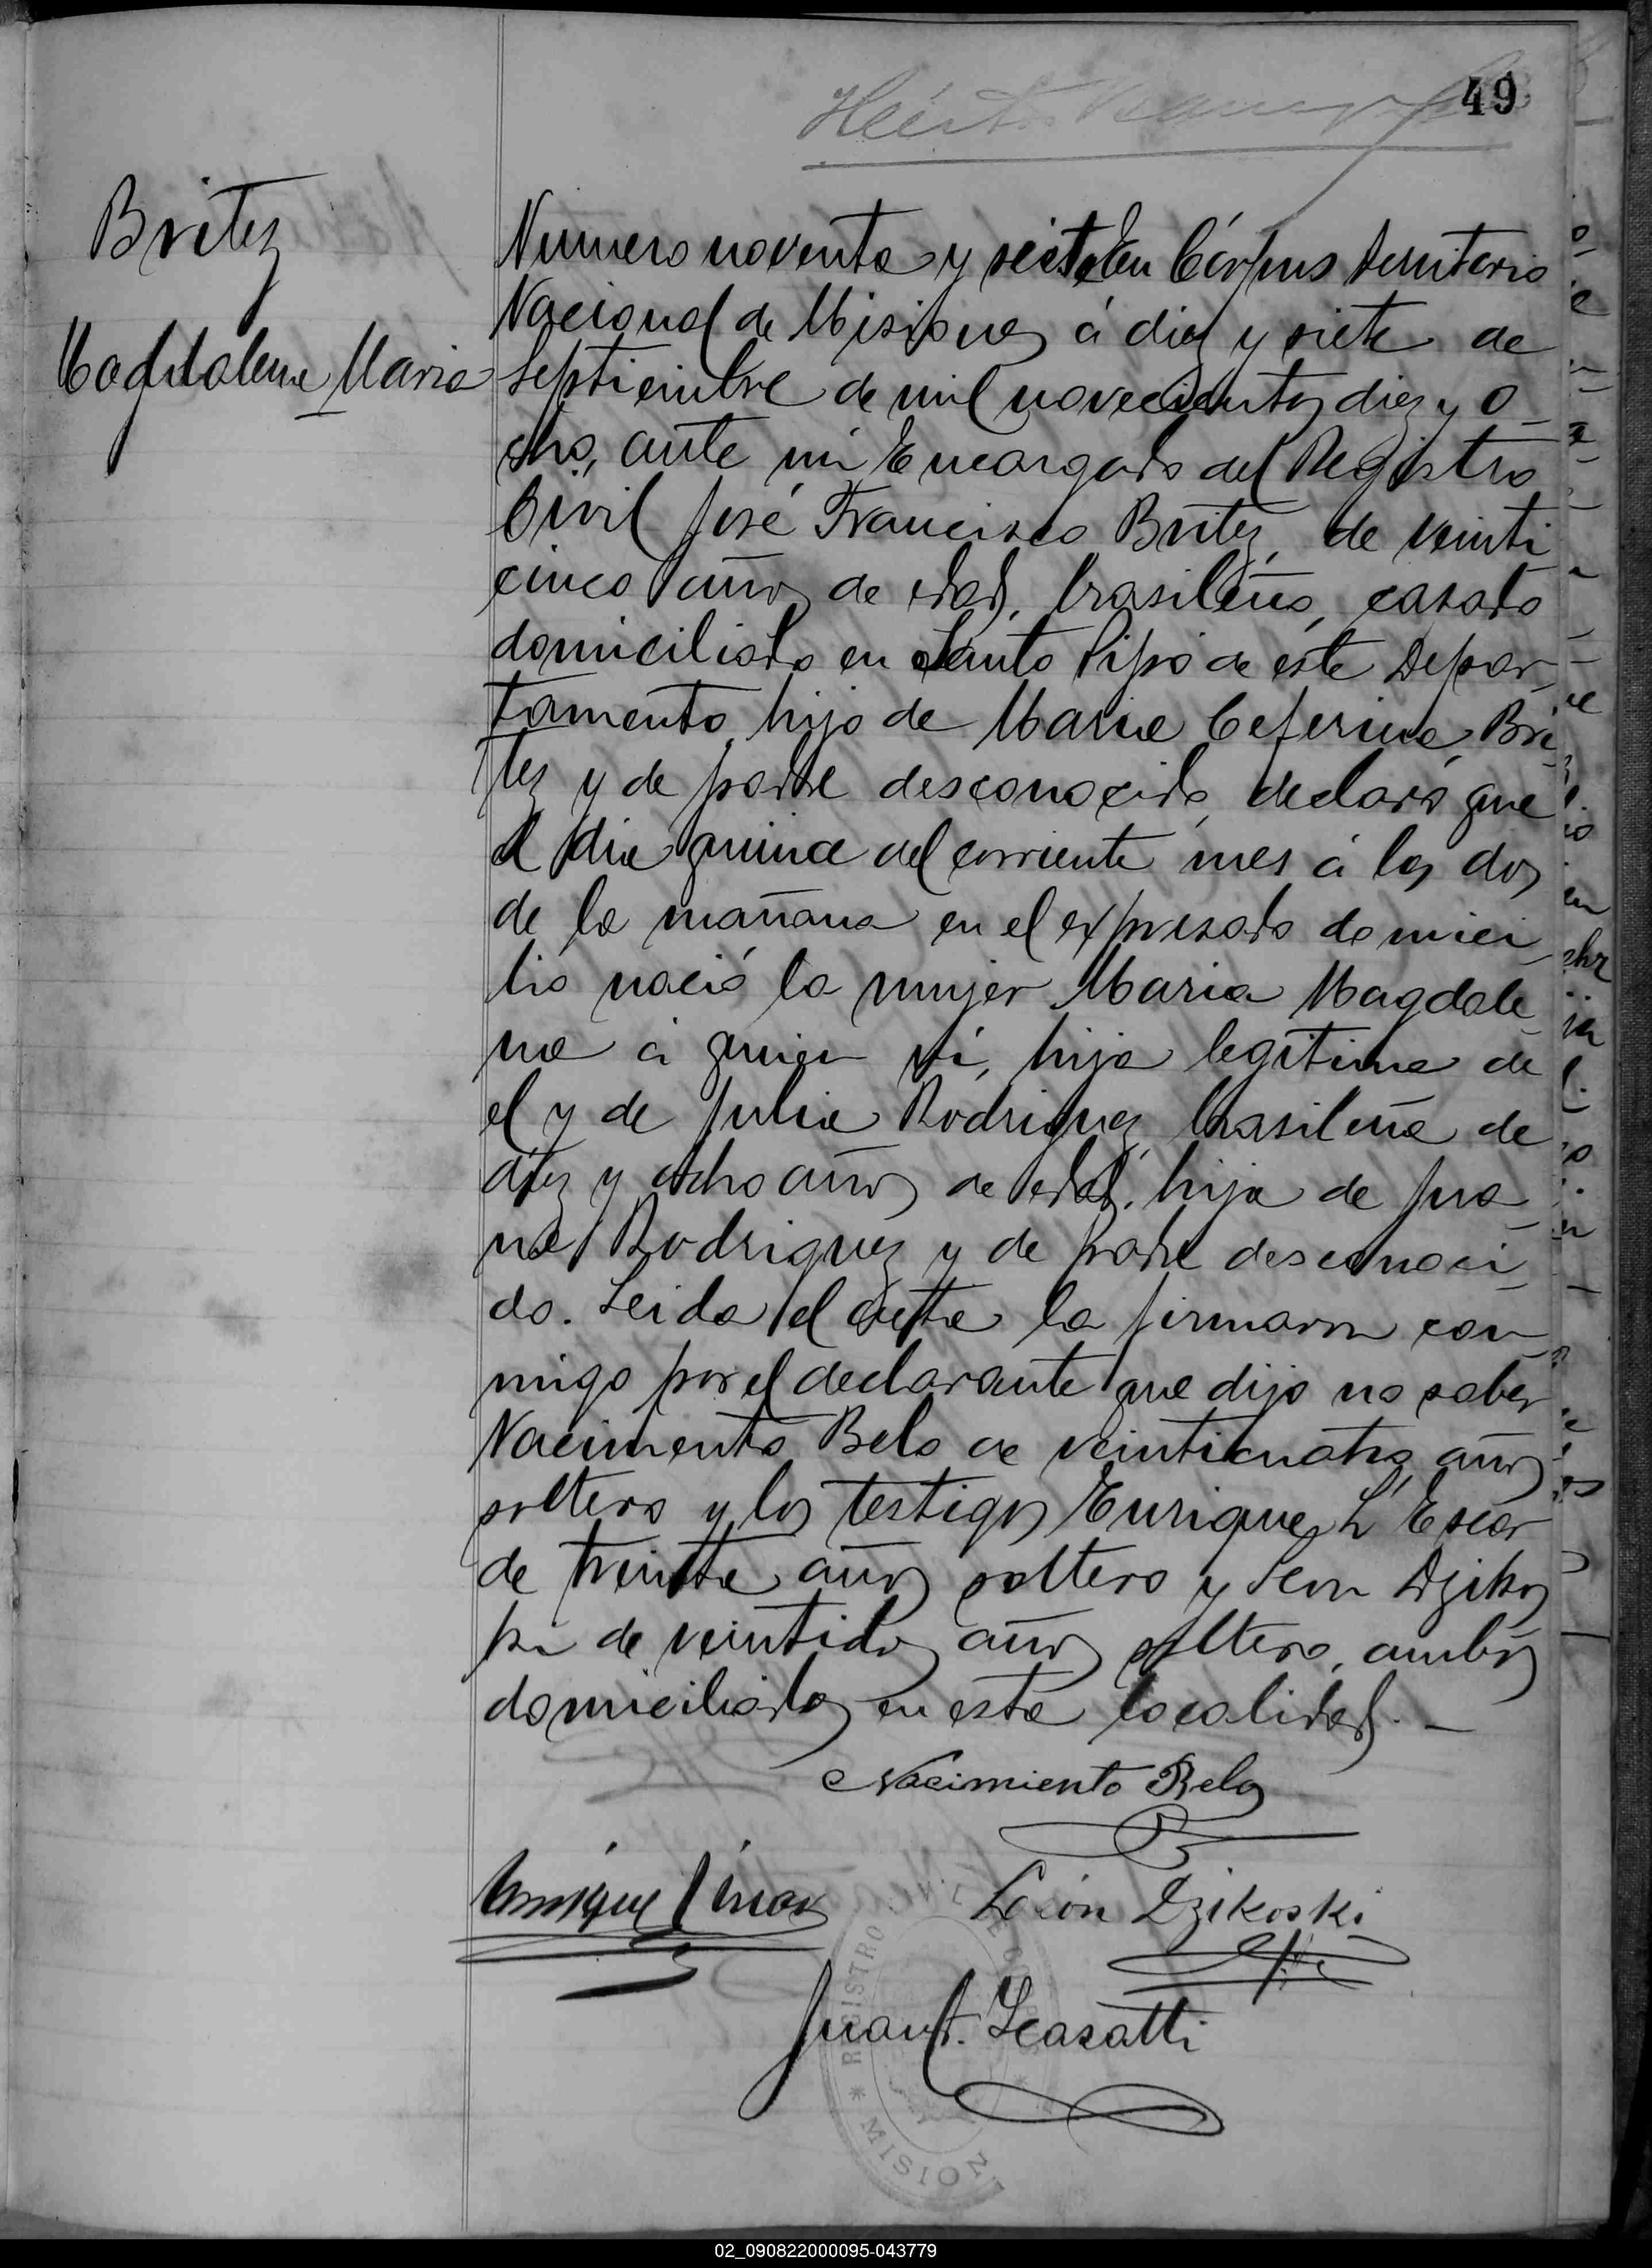 49
Britez
Magdalena Maria
Numero noventa y siete En Córpus Territorio
Nacional de Misiones á diez y siete de
Septiembre de mil novecientos diez y o
cho, ante mi Encargado del Registro
Civil José Francisco Britez, de veinti
cinco años de edad, brasileño, casado
domiciliado en Santo Pipó de este Depar
tamento, hijo de Maria Ceferina Bri
tez y de padre desconocido, declaró que
el dia quince del corriente mes á las dos
de la mañana en el expresado domici
lio nació la mujer Maria Magdale
na á quien ví, hija legitima de
el y de Julia Rodriguez brasileña de
diez y ocho años de edad, hija de Jua
na Rodriguez y de padre desconoci
do. Leida el acta la firmaron con
migo por el declarante que dijo no saber
Nacimento Belo de veinticuatro años
soltero y los testigos Enrique
de treinta años soltero y Leon Dzikos
ki de veintidos años soltero, ambos
domiciliados en esta localidad. —
Nacimiento Belo
Enrique
León Dzikoski
Juan F. Scasatti
REGISTRO
* MISION
02_090822000095-043779